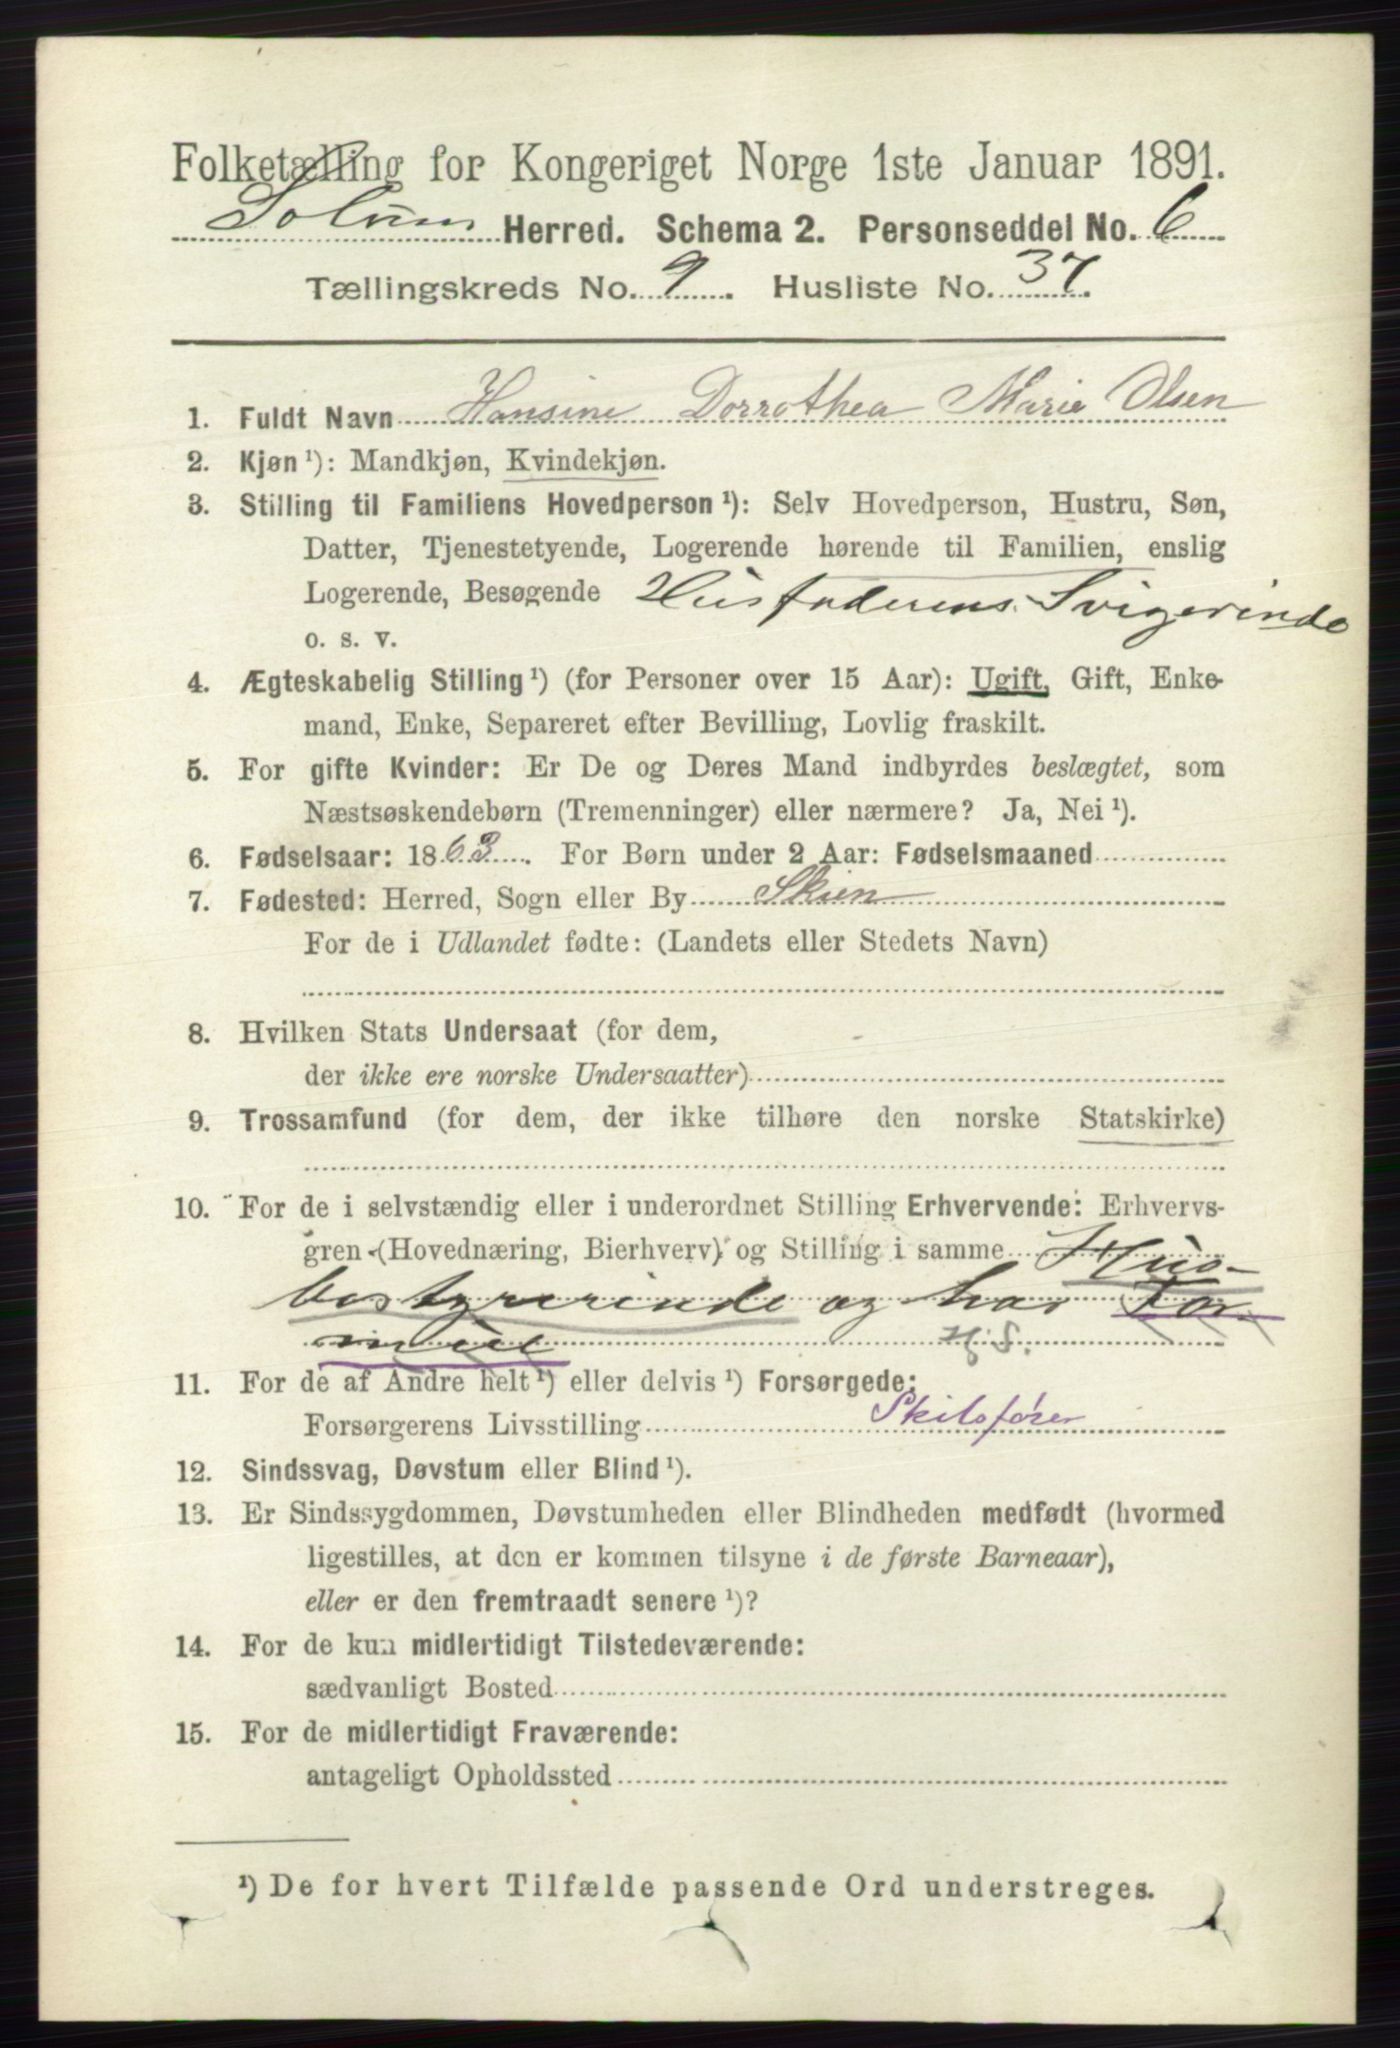 Folketælling for Kongeriget Norge 1ste Januar 1891.
Solum Herred. Schema 2. Personseddel No. 6
Tællingskreds No. 9. Husliste No. 37.
1. Fuldt Navn Hansine Dorrothea Marie Olsen
2. Kjøn ¹): Mandkjøn, Kvindekjøn.
3. Stilling til Familiens Hovedperson ¹): Selv Hovedperson, Hustru, Søn,
Datter, Tjenestetyende, Logerende hørende til Familien, enslig
Logerende, Besøgende Husfaderens Svigerinde
o. s. v.
4. Ægteskabelig Stilling ¹) (for Personer over 15 Aar): Ugift, Gift, Enke-
mand, Enke, Separeret efter Bevilling, Lovlig fraskilt.
5. For gifte Kvinder: Er De og Deres Mand indbyrdes beslægtet, som
Næstsøskendebørn (Tremenninger) eller nærmere? Ja, Nei ¹).
6. Fødselsaar: 1863. For Børn under 2 Aar: Fødselsmaaned
7. Fødested: Herred, Sogn eller By Skien
For de i Udlandet fødte: (Landets eller Stedets Navn)
8. Hvilken Stats Undersaat (for dem,
der ikke ere norske Undersaatter)
9. Trossamfund (for dem, der ikke tilhøre den norske Statskirke)
10. For de i selvstændig eller i underordnet Stilling Erhvervende: Erhvervs-
gren (Hovednæring, Bierhverv) og Stilling i samme Hus-
bestyrerinde og har For
mue H. S.
11. For de af Andre helt ¹) eller delvis ¹) Forsørgede:
Forsørgerens Livsstilling Skibsfører
12. Sindssvag, Døvstum eller Blind ¹).
13. Er Sindssygdommen, Døvstumheden eller Blindheden medfødt (hvormed
ligestilles, at den er kommen tilsyne i de første Barneaar),
eller er den fremtraadt senere ¹)?
14. For de kun midlertidigt Tilstedeværende:
sædvanligt Bosted
15. For de midlertidigt Fraværende:
antageligt Opholdssted
¹) De for hvert Tilfælde passende Ord understreges.